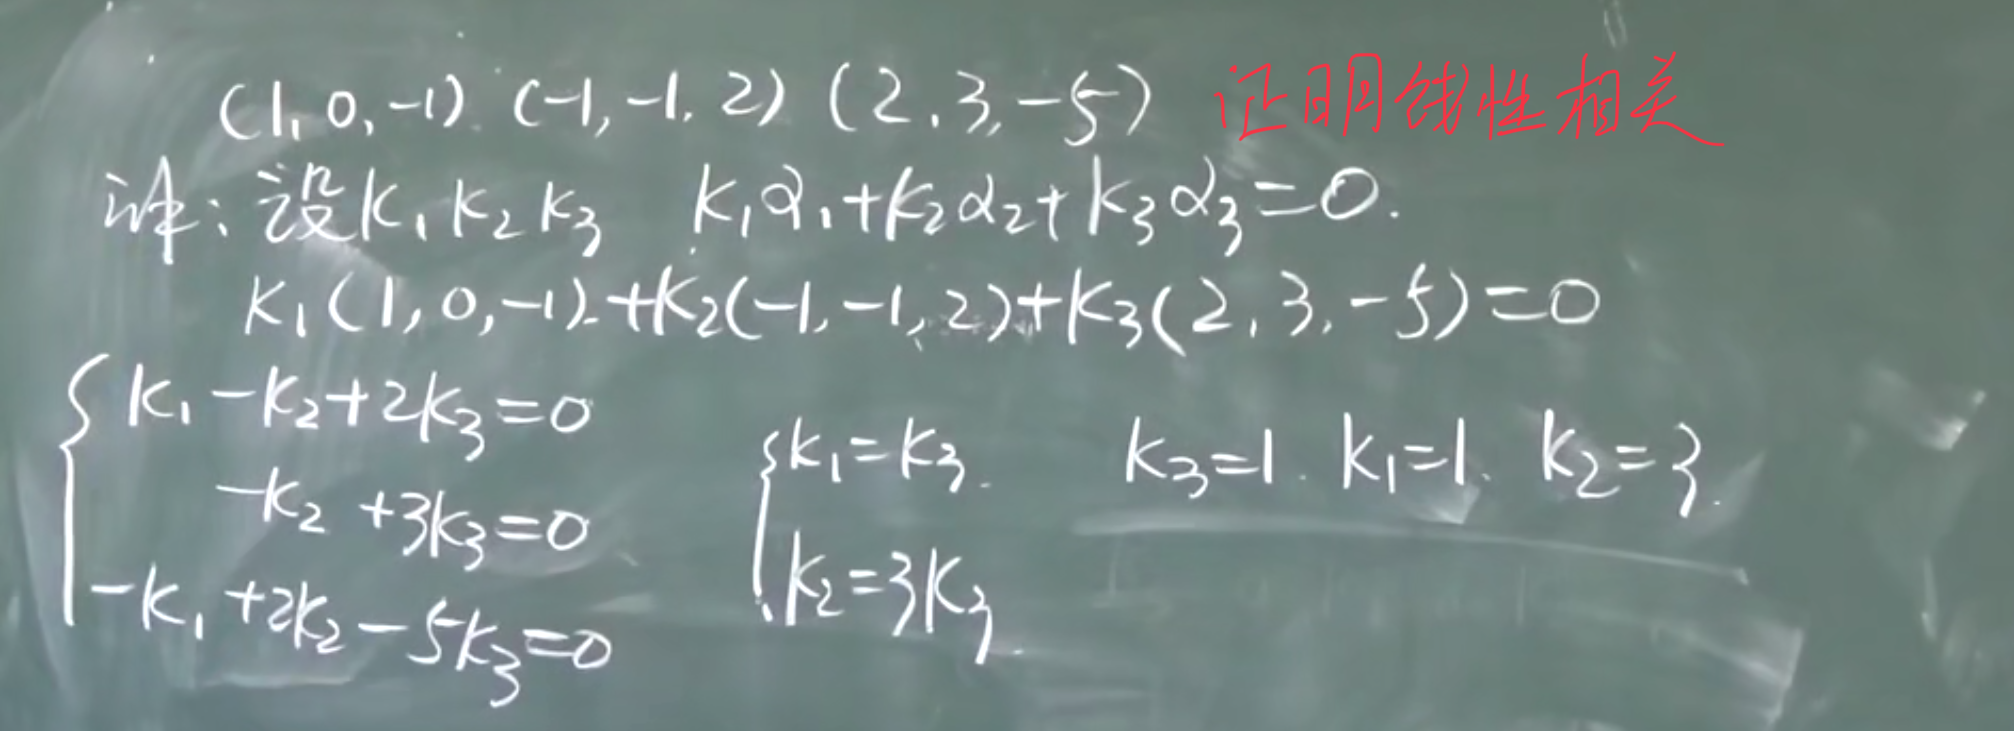 (1,0,-1) (-1,-1,2) (2,3,-5) 证明线性相关
证:设K₁K₂K₃ K₁α₁+K₂α₂+K₃α₃=0.
K₁(1,0,-1)+K₂(-1,-1,2)+K₃(2,3,-5)=0
{K₁-K₂+2K₃=0
-K₂+3K₃=0
-K₁+2K₂-5K₃=0
{K₁=K₃.
K₂=3K₃.
K₃=1. K₁=1. K₂=3.